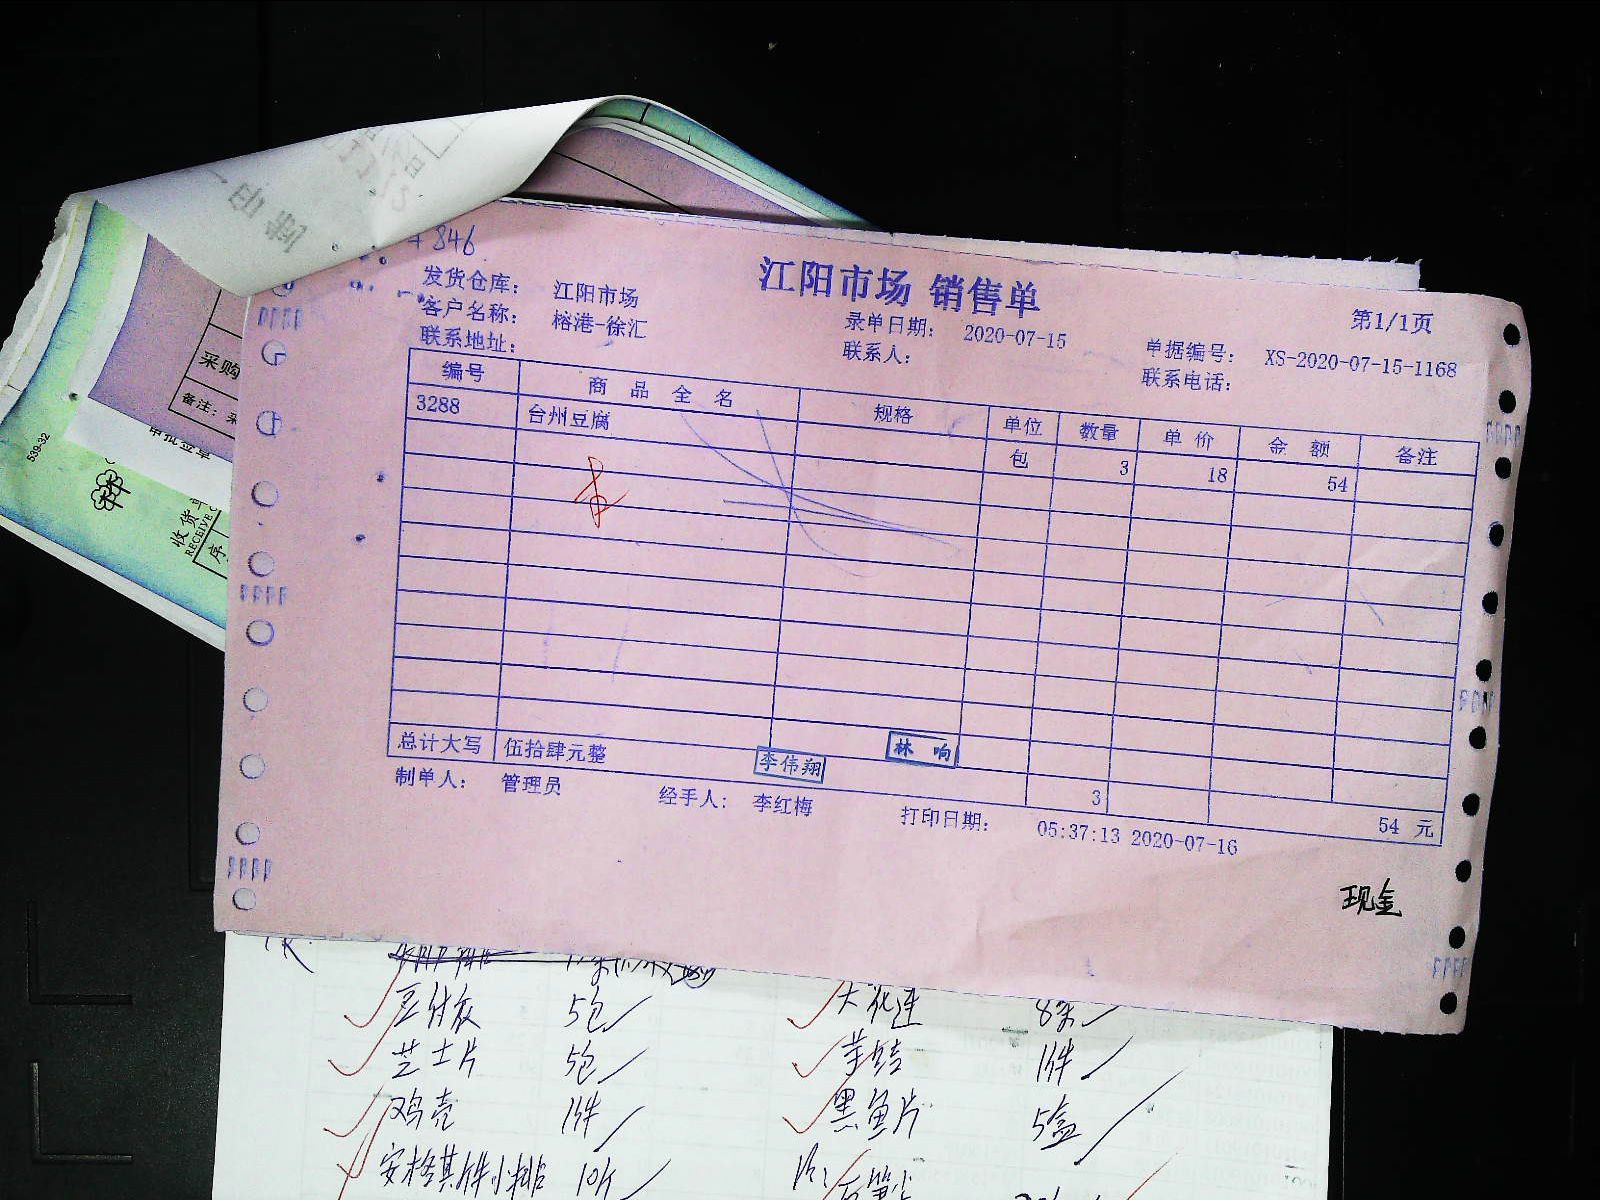 846
江阳市场 销售单
第1/1页
发货仓库： 江阳市场
客户名称： 榕港-徐汇 录单日期： 2020-07-15 单据编号： XS-2020-07-15-1168
联系地址： 联系人： 联系电话：
编号 商品全名 规格 单位 数量 单价 金额 备注
3288 台州豆腐 包 3 18 54
总计大写 伍拾肆元整 3 54 元
李伟翔 林响
制单人： 管理员 经手人： 李红梅 打印日期： 05:37:13 2020-07-16
现金
采购
备注：
审批签章
539-32
收货
RECEIVE
序
5包 8条
芝士片 5包 1件
鸡壳 1件 黑鱼片 5盒
10斤